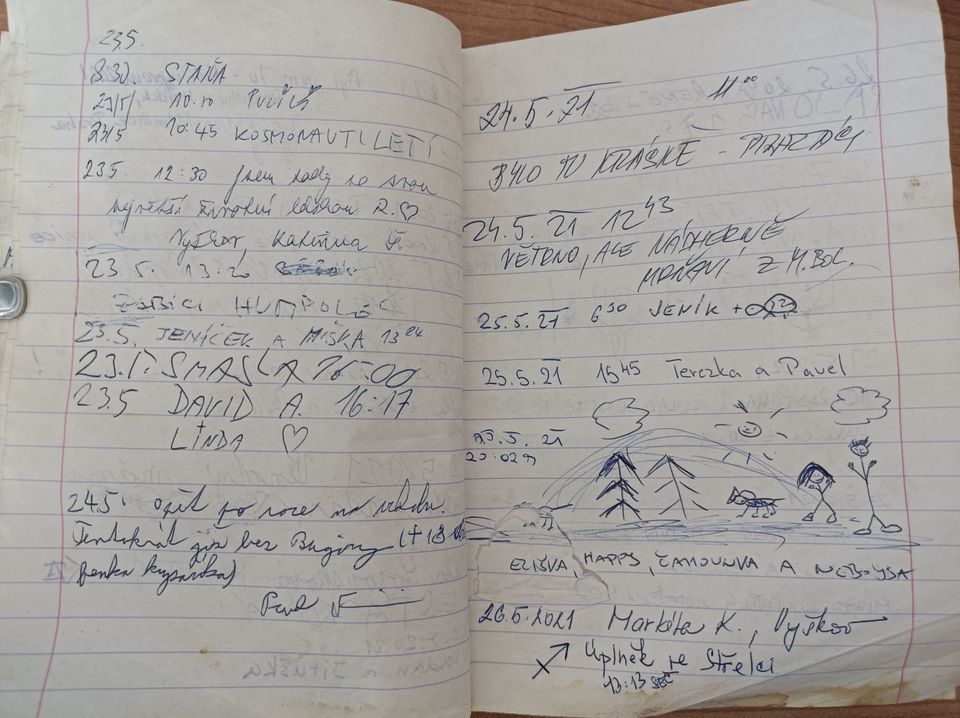 23.5.
8:30. STAŇA
23/5/ 10:10
23/5 10:45 KOSMONAUTI LETÍ
23.5. 12:30 jsem tady se svou
největší životní láskou R. ♡
Vyškov, Kateřina
23.5. 13:20
HUMPOLEC
23.5. JENÍČEK A MIŠKA 13 24
23.5. SMASLA 16:00
23.5 DAVID A. 16:17
LINDA ♡
24.5. Opět po roce na vrcholu.
Tentokrát již bez
Pavel
24.5.21 11 00
BYLO TU KRÁSNĚ -
24.5.21 12 43
VĚTRNO, ALE NÁDHERNĚ
Z M. BOL.
25.5.21 6 30 JENÍK +
25.5.21 15 45 Terezka a Pavel
25.5.21
20:02
ELIŠKA, HAPPY, ČAMOUNVA A NEBOJSA
26.5.2021 Markéta K., Vyškov
Úplněk ve Střelci
13:13 SEČ